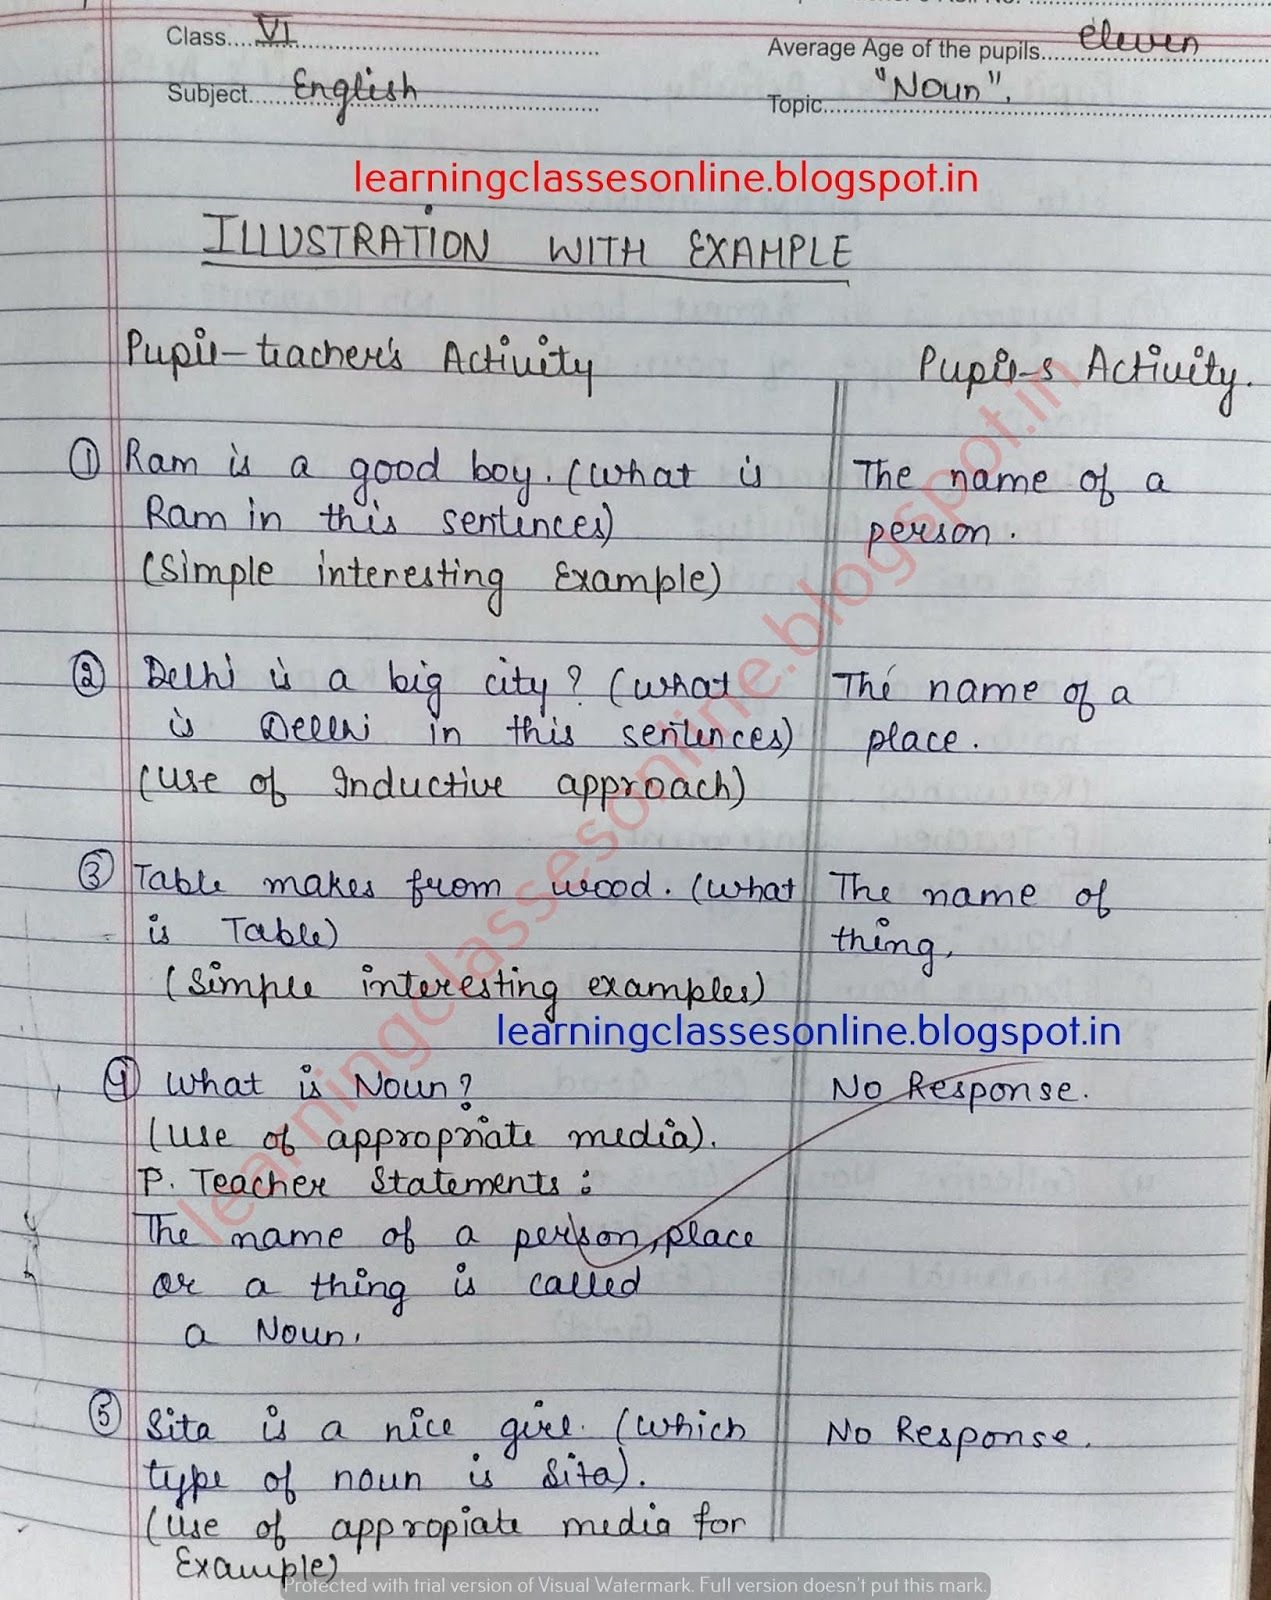 Class....VI
Average Age of the pupils....eleven
Subject....English
Topic...."Noun".
learningclassesonline.blogspot.in
ILLUSTRATION WITH EXAMPLE
Pupil-teacher's Activity
Pupil-s Activity.
① Ram is a good boy. (what is
The name of a
Ram in this sentences)
person.
(Simple interesting Example)
② Delhi is a big city? (what
The name of a
is Delhi in this sentences)
place.
(use of Inductive approach)
③ Table makes from wood. (what
The name of
is Table)
thing.
(Simple interesting examples)
learningclassesonline.blogspot.in
④ What is Noun?
No Response.
(use of appropriate media).
P. Teacher Statements :
The name of a person, place
or a thing is called
a Noun.
⑤ Sita is a nice girl. (which
No Response.
type of noun is Sita).
(Use of appropiate media for
Example)
learningclassesonline.blogspot.in
Protected with trial version of Visual Watermark. Full version doesn't put this mark.